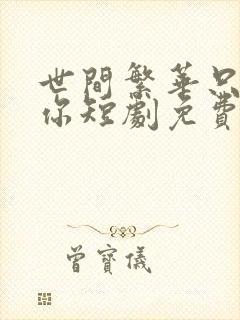 世間繁華只
你短劇免費
曾寶儀